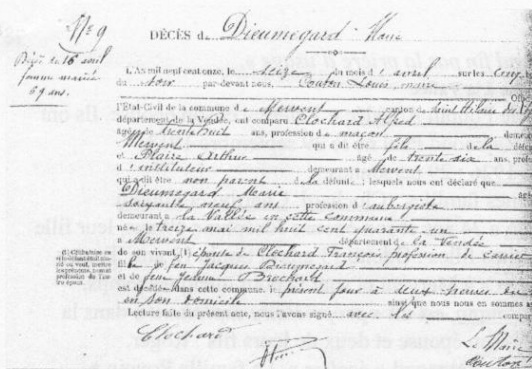 N° 9
Décès du 16 avril
femme mariée
69 ans.
DÉCÈS de Dieumegard Marie
L'An mil neuf cent onze, le seize du mois d'avril sur les cinq
du soir par-devant nous, Couton Louis maire
l'État-Civil de la commune de Mervent canton de Saint Hilaire
département de la Vendée, ont comparu Clochard Alfred
âgé de trente huit ans, profession de maçon
Mervent qui a dit être fils de la défunte
et Plaire Arthur âgé de trente six ans,
d'instituteur demeurant à Mervent
qui a dit être non parent de la défunte ; lesquels nous ont déclaré que
Dieumegard Marie
soixante neuf ans profession d'aubergiste
demeurant à la Vallée en cette commune
née le treize mai mil huit cent quarante un
à Mervent département de la Vendée
de son vivant, (1) épouse de Clochard François profession de carrier
fille de feu Jacques Dieumegard
et de feue Jeanne Brochard
est décédée dans cette commune, le présent jour à deux heures du
en son domicile ainsi que nous nous en sommes
Lecture faite du présent acte, nous l'avons signé avec les
Clochard
Le Maire
Couton